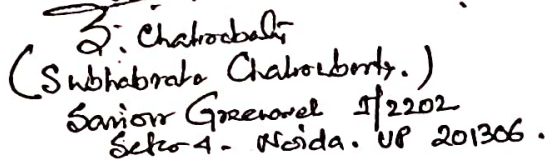 S. Chakroborty
(Subhabrata Chakroborty.)
Saviour Greenarch I/2202
Sector 4 - Noida. UP 201306.